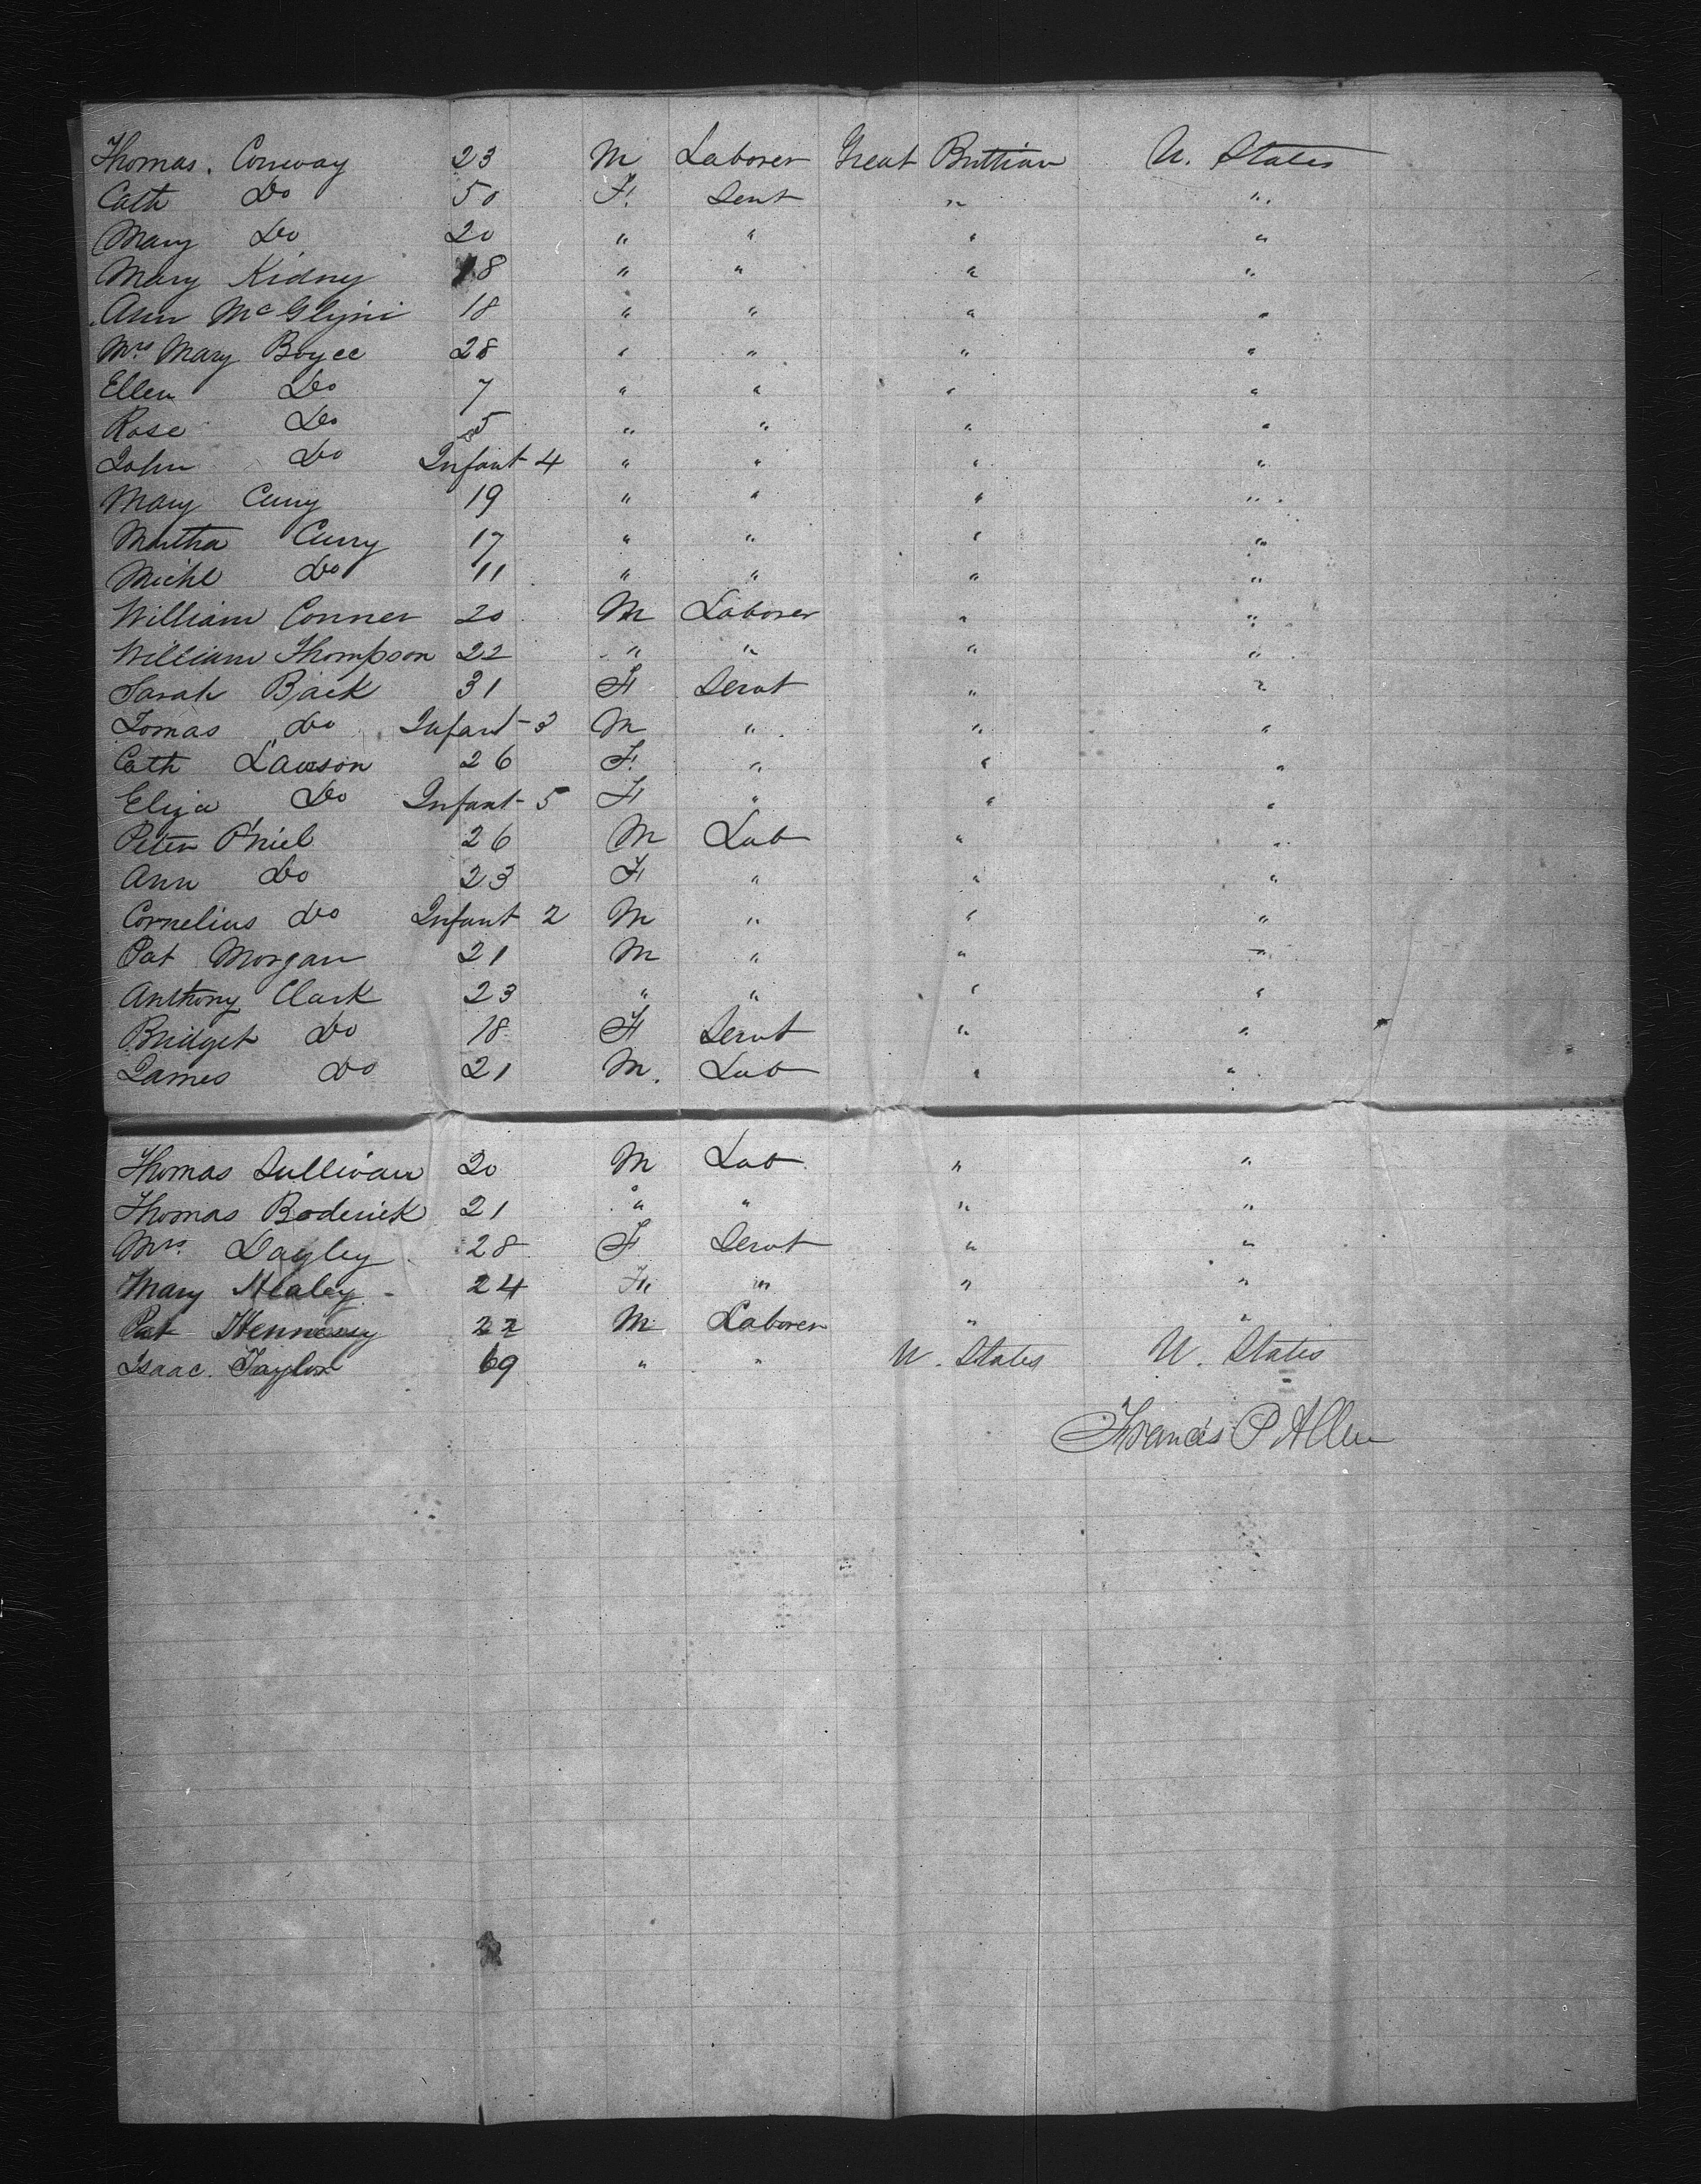 Thomas. Conway 23 M Laborer Great Brittian U. States
Cath Do 50 F. Sevt " "
Mary Do 20 " " " "
Mary Kidny 18 " " " "
Ann McGlyni 18 " " " "
Mrs Mary Boyce 28 " " " "
Ellen Do 7 " " " "
Rose Do 5 " " " "
John Do Infant 4 " " " "
Mary Curry 19 " " " "
Martha Curry 17 " " " "
Michl Do 11 " " " "
William Conner 20 M Laborer " "
William Thompson 22 " " " "
Sarah Back 31 F Servt " "
Tomas Do Infant - 3 M " " "
Cath Lawson 26 F. " " "
Eliza Do Infant - 5 F " " "
Peter O'niel 26 M Lab " "
Ann Do 23 F " " "
Cornelius Do Infant 2 M " " "
Pat Morgan 21 M " " "
Anthony Clark 23 " " " "
Bridget Do 18 F Servt " "
James Do 21 M. Lab " "
Thomas Sullivan 20 M Lab " "
Thomas Roderick 21 " " " "
Mrs. Dayley 28 F Servt " "
Mary Healey - 24 F " " "
Pat Hennessy 22 M Laborer " "
Isaac. Taylor 69 " " U. States U. States
Francis P Allen